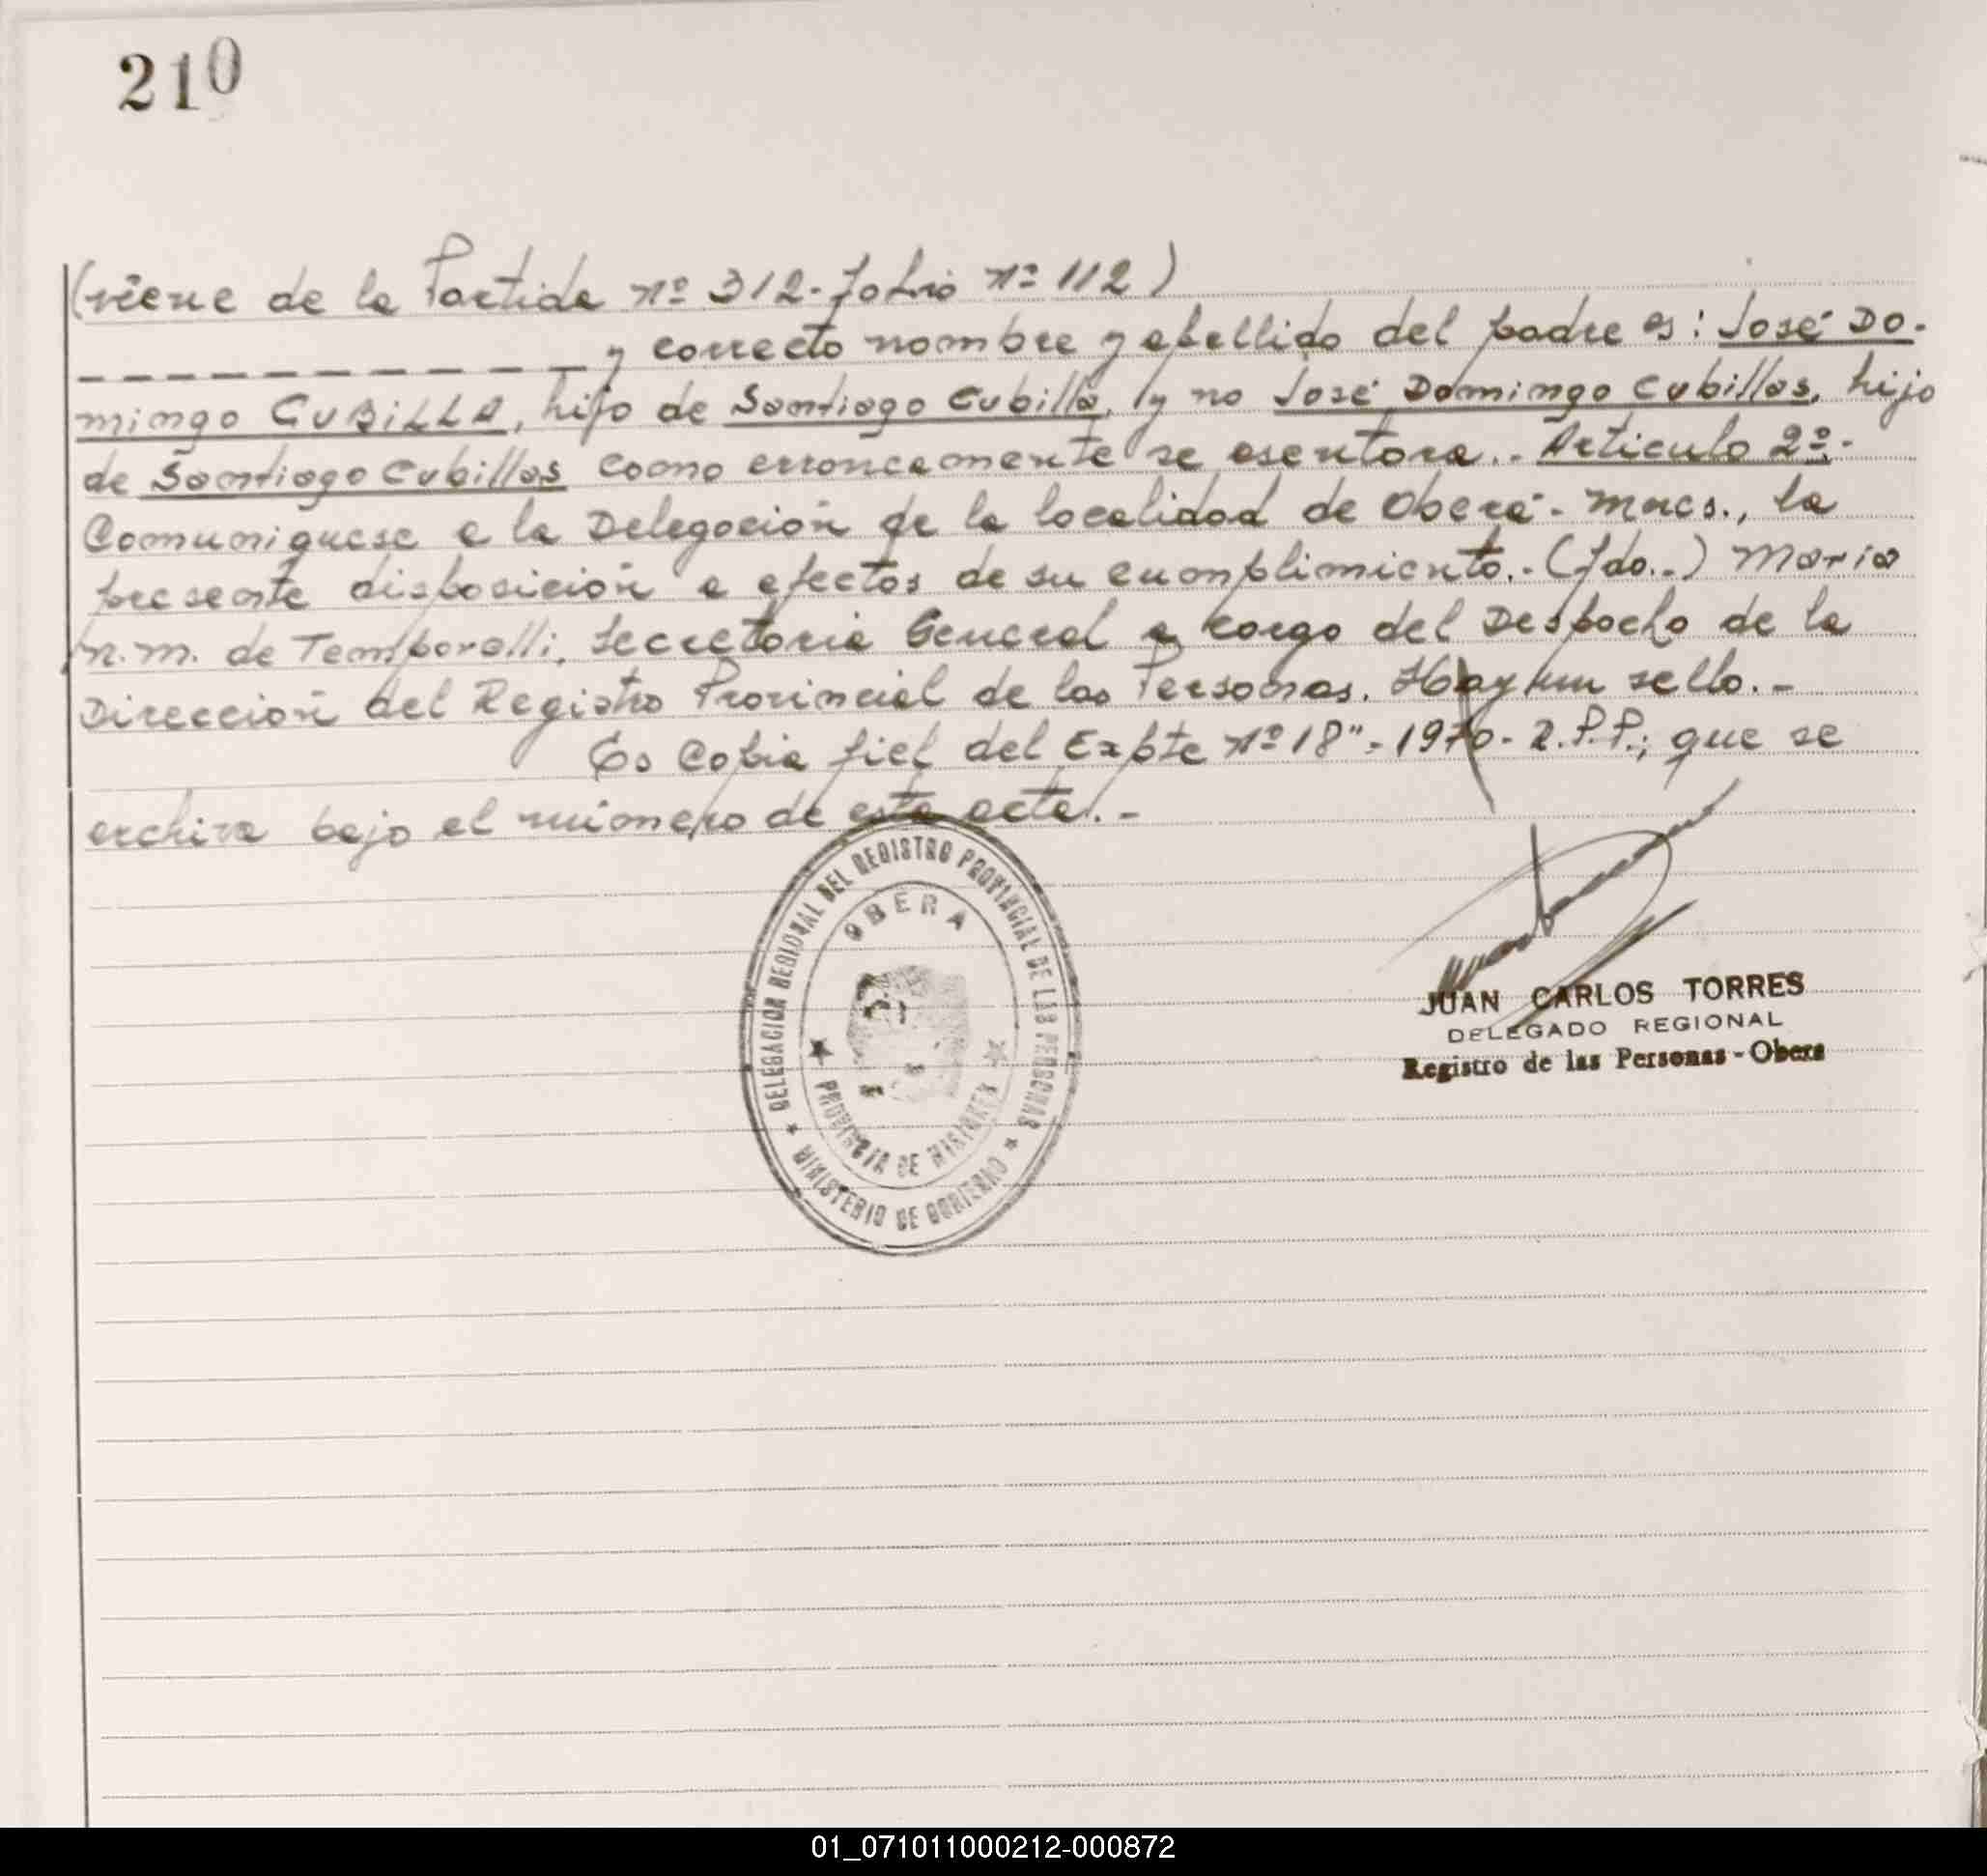 210
(viene de la Partida nº 312- Folio nº 112)
___________ y correcto nombre y apellido del padre es: José Do-
mingo CUBILLA, hijo de Santiago Cubilla, y no José Domingo Cubillas, hijo
de Santiago Cubillas como erroneamente se asentara.- Articulo 2º.-
Comuníquese a la Delegación de la localidad de Oberá- Mnes., la
presente disposición a efectos de su cumplimiento.- (Fdo.-) Maria
N.M. de Temporelli, Secretaria General a cargo del Despacho de la
Dirección del Registro Provincial de las Personas. Hay un sello.-
Es Copia fiel del Expte nº 18"- 1970- R.P.P.; que se
archiva bajo el número de esta acta.-
DELEGACION REGIONAL DEL REGISTRO PROVINCIAL DE LAS PERSONAS
OBERA
PROVINCIA DE MISIONES
MINISTERIO DE GOBIERNO
JUAN CARLOS TORRES
DELEGADO REGIONAL
Registro de las Personas - Obera
01_071011000212-000872